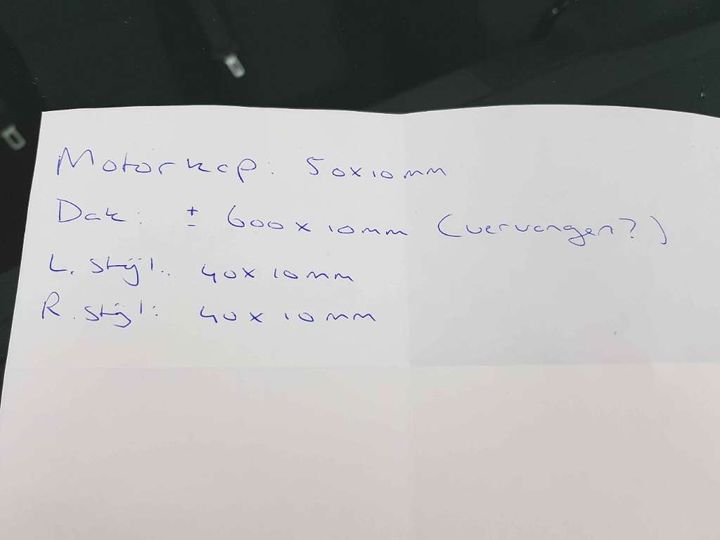 Motorkap: 50x10mm
Dak: ± 600x10mm (vervangen?)
L. stijl: 40x10mm
R. stijl: 40x10mm